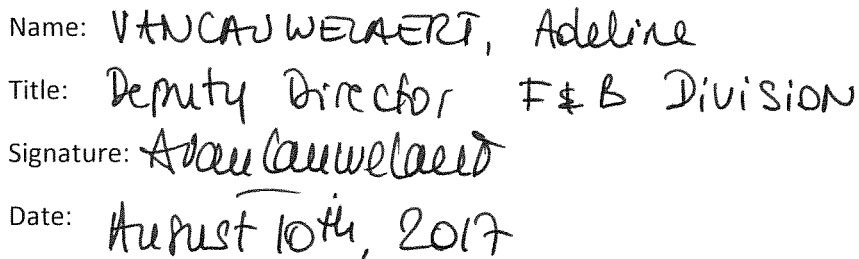 Name: VANCAUWELAERT, Adeline
Title: Deputy Director F&B Division
Signature: AVanCauwelaert
Date: August 10th, 2017